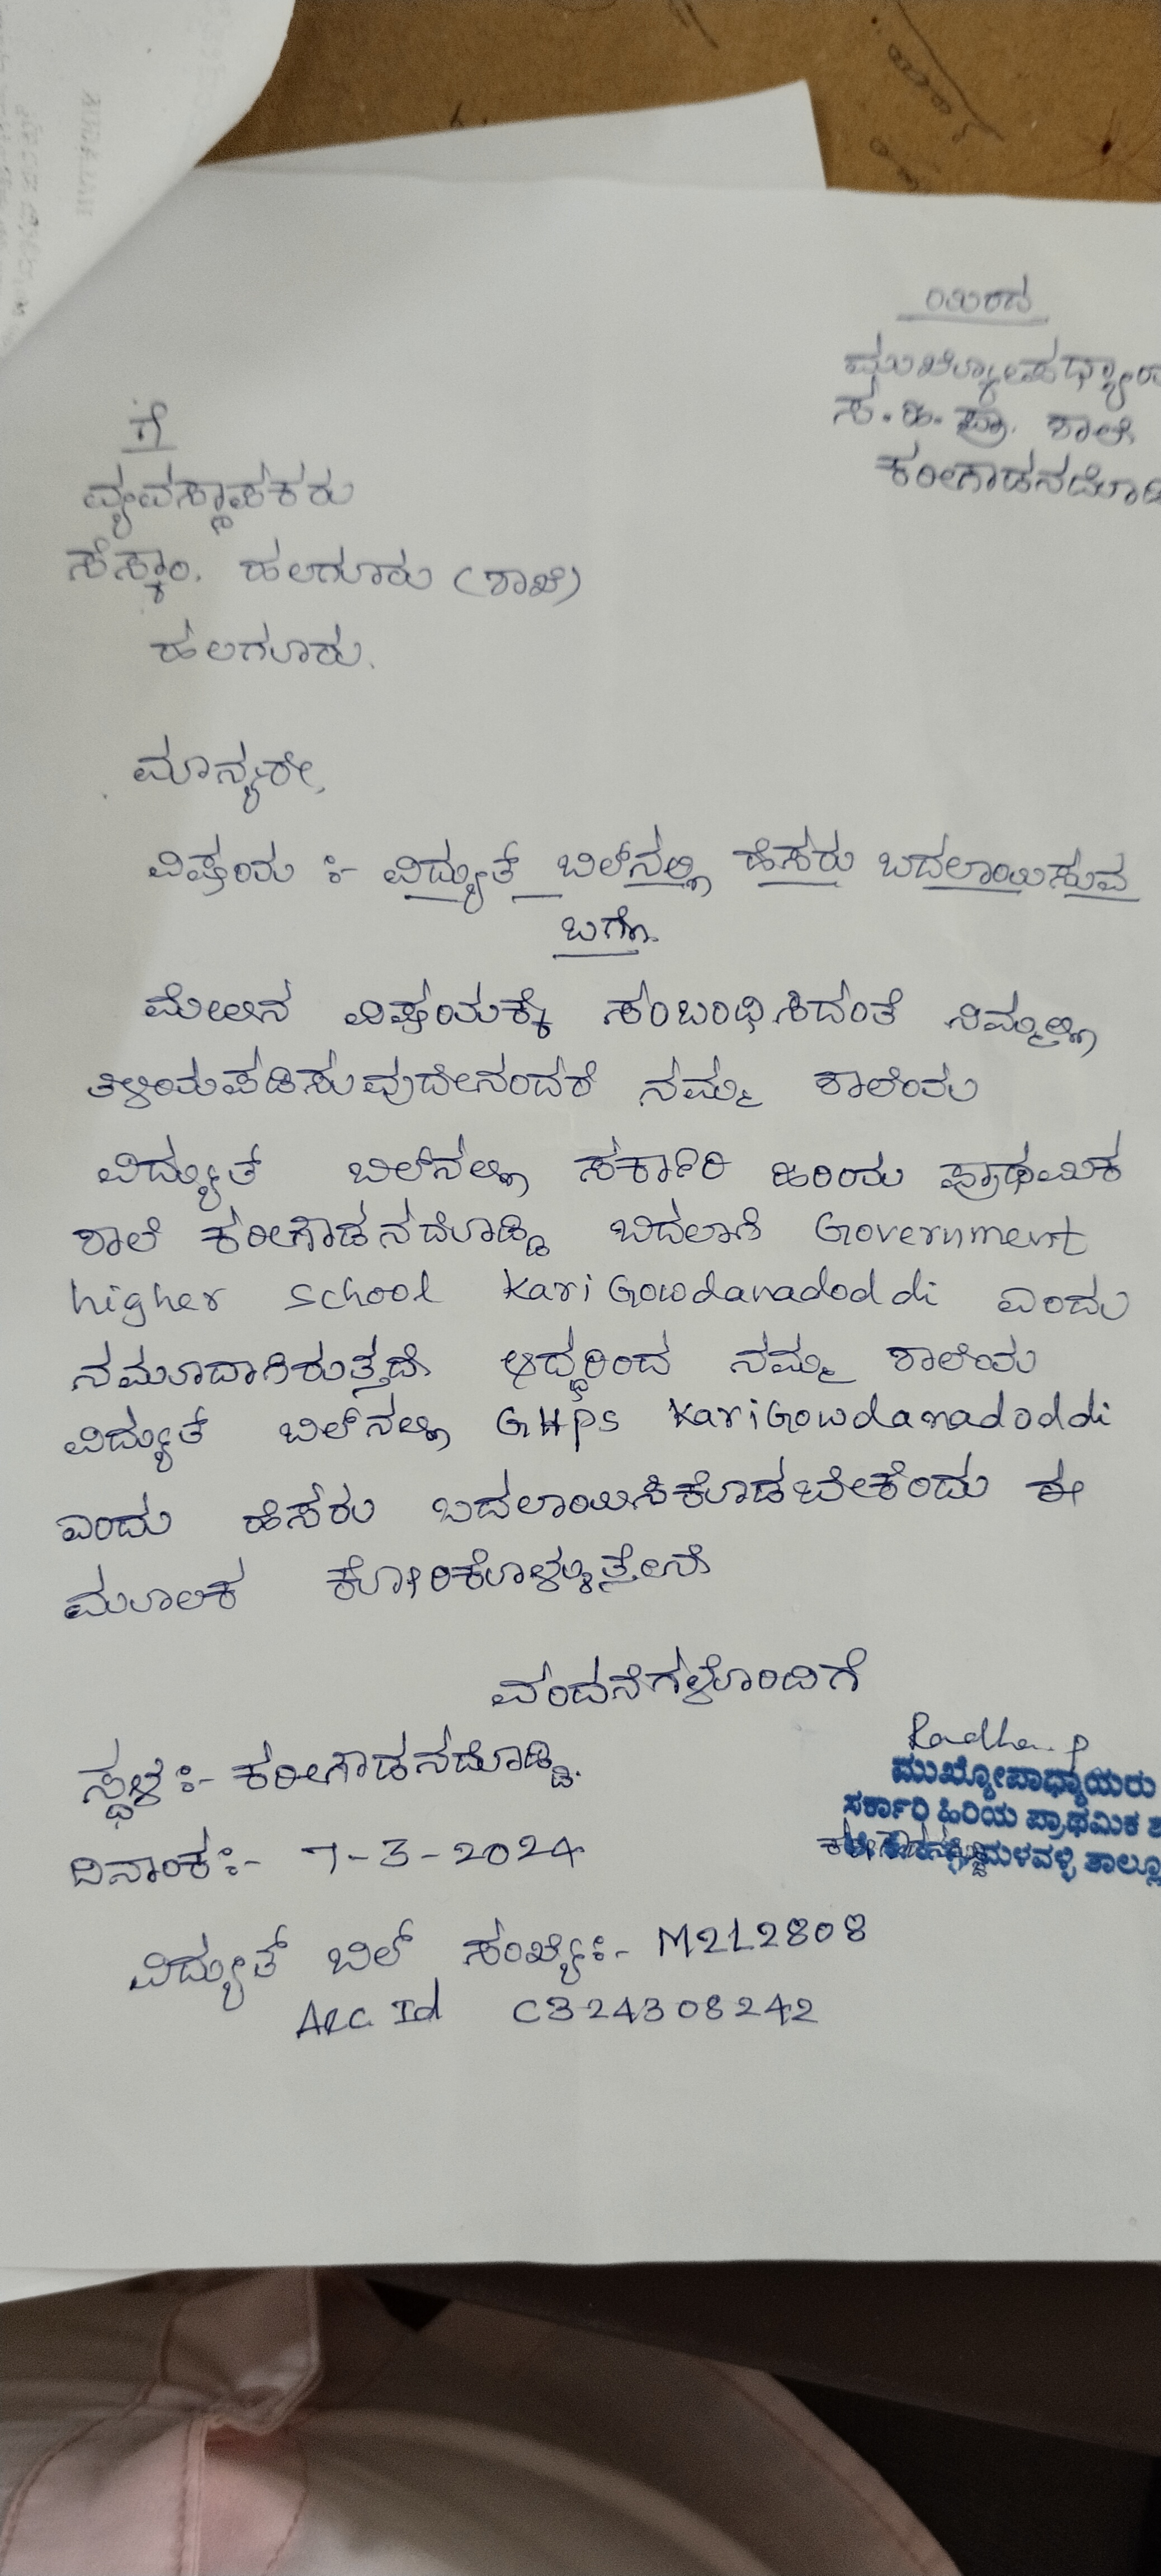 ಯಿಂದ
ಮುಖ್ಯೋಪಧ್ಯಾಯ
ಸ. ಹಿ. ಪ್ರಾ. ಶಾಲೆ
ಕರೀಗೌಡನದೊಡ್ಡಿ
ಗೆ
ವ್ಯವಸ್ಥಾಪಕರು
ಸೆಸ್ಕಾಂ. ಹಲಗೂರು (ಶಾಖೆ)
ಹಲಗೂರು.
ಮಾನ್ಯರೇ,
ವಿಷಯ :- ವಿದ್ಯುತ್ ಬಿಲ್‌ನಲ್ಲಿ ಹೆಸರು ಬದಲಾಯಿಸುವ
ಬಗ್ಗೆ.
ಮೇಲಿನ ವಿಷಯಕ್ಕೆ ಸಂಬಂಧಿಸಿದಂತೆ ನಿಮ್ಮಲ್ಲಿ
ತಿಳಿಯಪಡಿಸುವುದೇನಂದರೆ ನಮ್ಮ ಶಾಲೆಯ
ವಿದ್ಯುತ್ ಬಿಲ್‌ನಲ್ಲಿ ಸರ್ಕಾರಿ ಹಿರಿಯ ಪ್ರಾಥಮಿಕ
ಶಾಲೆ ಕರೀಗೌಡನದೊಡ್ಡಿ ಬದಲಾಗಿ Government
higher school KariGowdanadoddi ಎಂದು
ನಮೂದಾಗಿರುತ್ತದೆ. ಆದ್ದರಿಂದ ನಮ್ಮ ಶಾಲೆಯ
ವಿದ್ಯುತ್ ಬಿಲ್‌ನಲ್ಲಿ GHps KariGowdanadoddi
ಎಂದು ಹೆಸರು ಬದಲಾಯಿಸಿಕೊಡಬೇಕೆಂದು ಈ
ಮೂಲಕ ಕೋರಿಕೊಳ್ಳುತ್ತೇನೆ
ವಂದನೆಗಳೊಂದಿಗೆ
ಸ್ಥಳ:- ಕರೀಗೌಡನದೊಡ್ಡಿ.
Radha. p
ಮುಖ್ಯೋಪಾಧ್ಯಾಯರು
ಸರ್ಕಾರಿ ಹಿರಿಯ ಪ್ರಾಥಮಿಕ ಶ
ಮಳವಳ್ಳಿ ತಾಲ್ಲೂ
ದಿನಾಂಕ:- 7-3-2024
ವಿದ್ಯುತ್ ಬಿಲ್ ಸಂಖ್ಯೆ:- M212808
Acc. Id C324308242